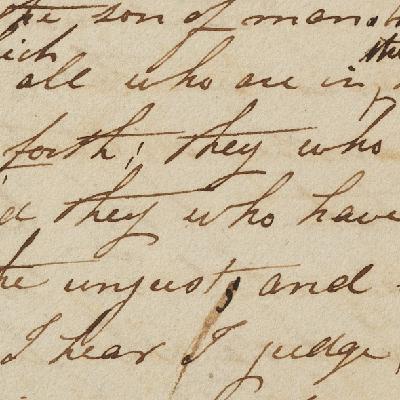 the son of man
ich
all who are in
forth; they who
d they who have
he unjust, and
I hear I judge,